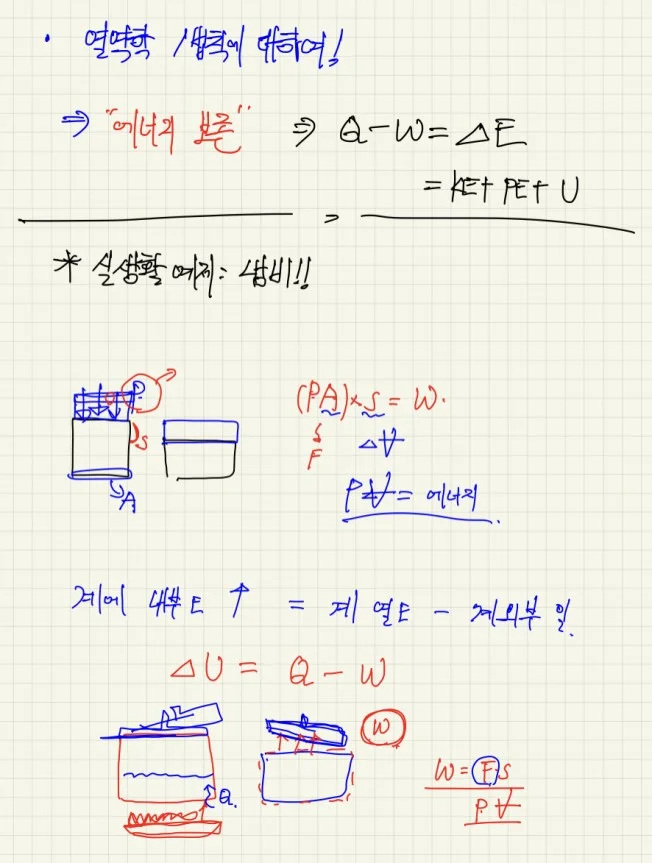 • 열역학 1법칙에 대하여!
⇒ "에너지 보존" ⇒ Q - W = △E
= KE + PE + U
* 실생활 예제: 냄비!!
P
S
A
(PA) × S = W.
F △V
PV = 에너지.
계에 내부E ↑ = 계 열E - 계외부 일.
△U = Q - W
Q
W
W = F S
P V